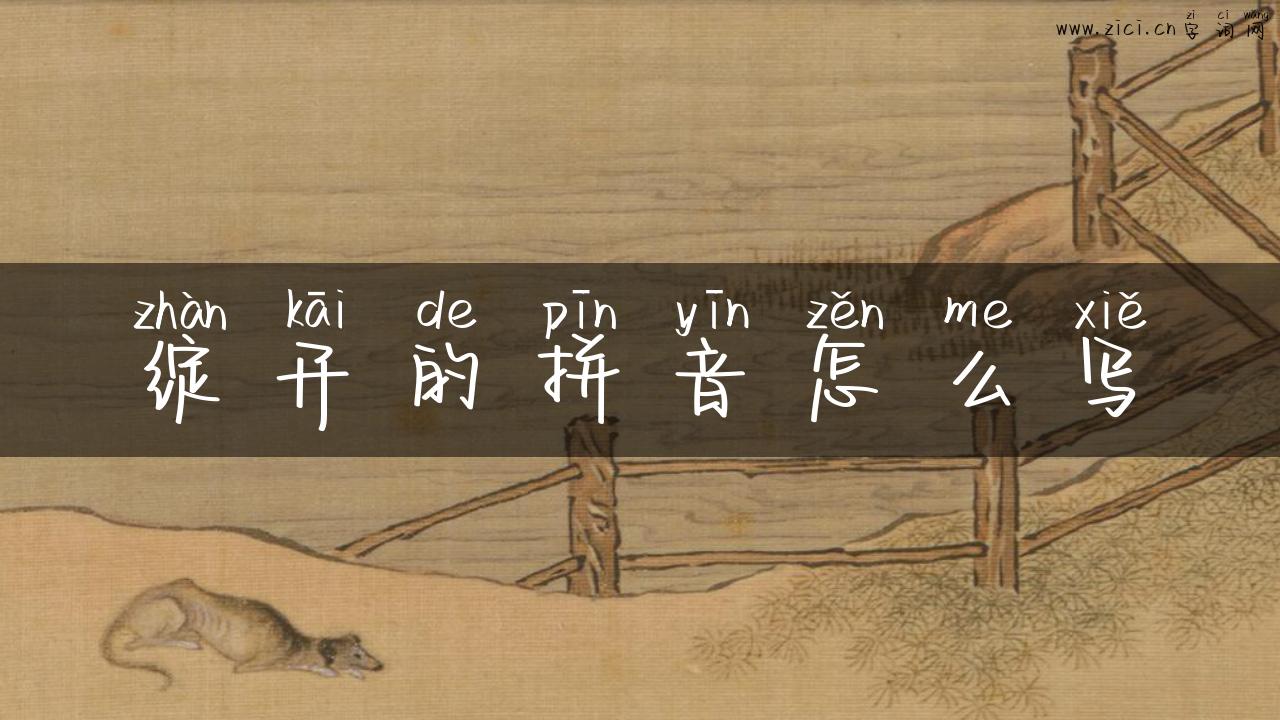 zi ci wang
www.zici.cn字词网
zhàn kāi de pīn yīn zěn me xiě
绽开的拼音怎么写